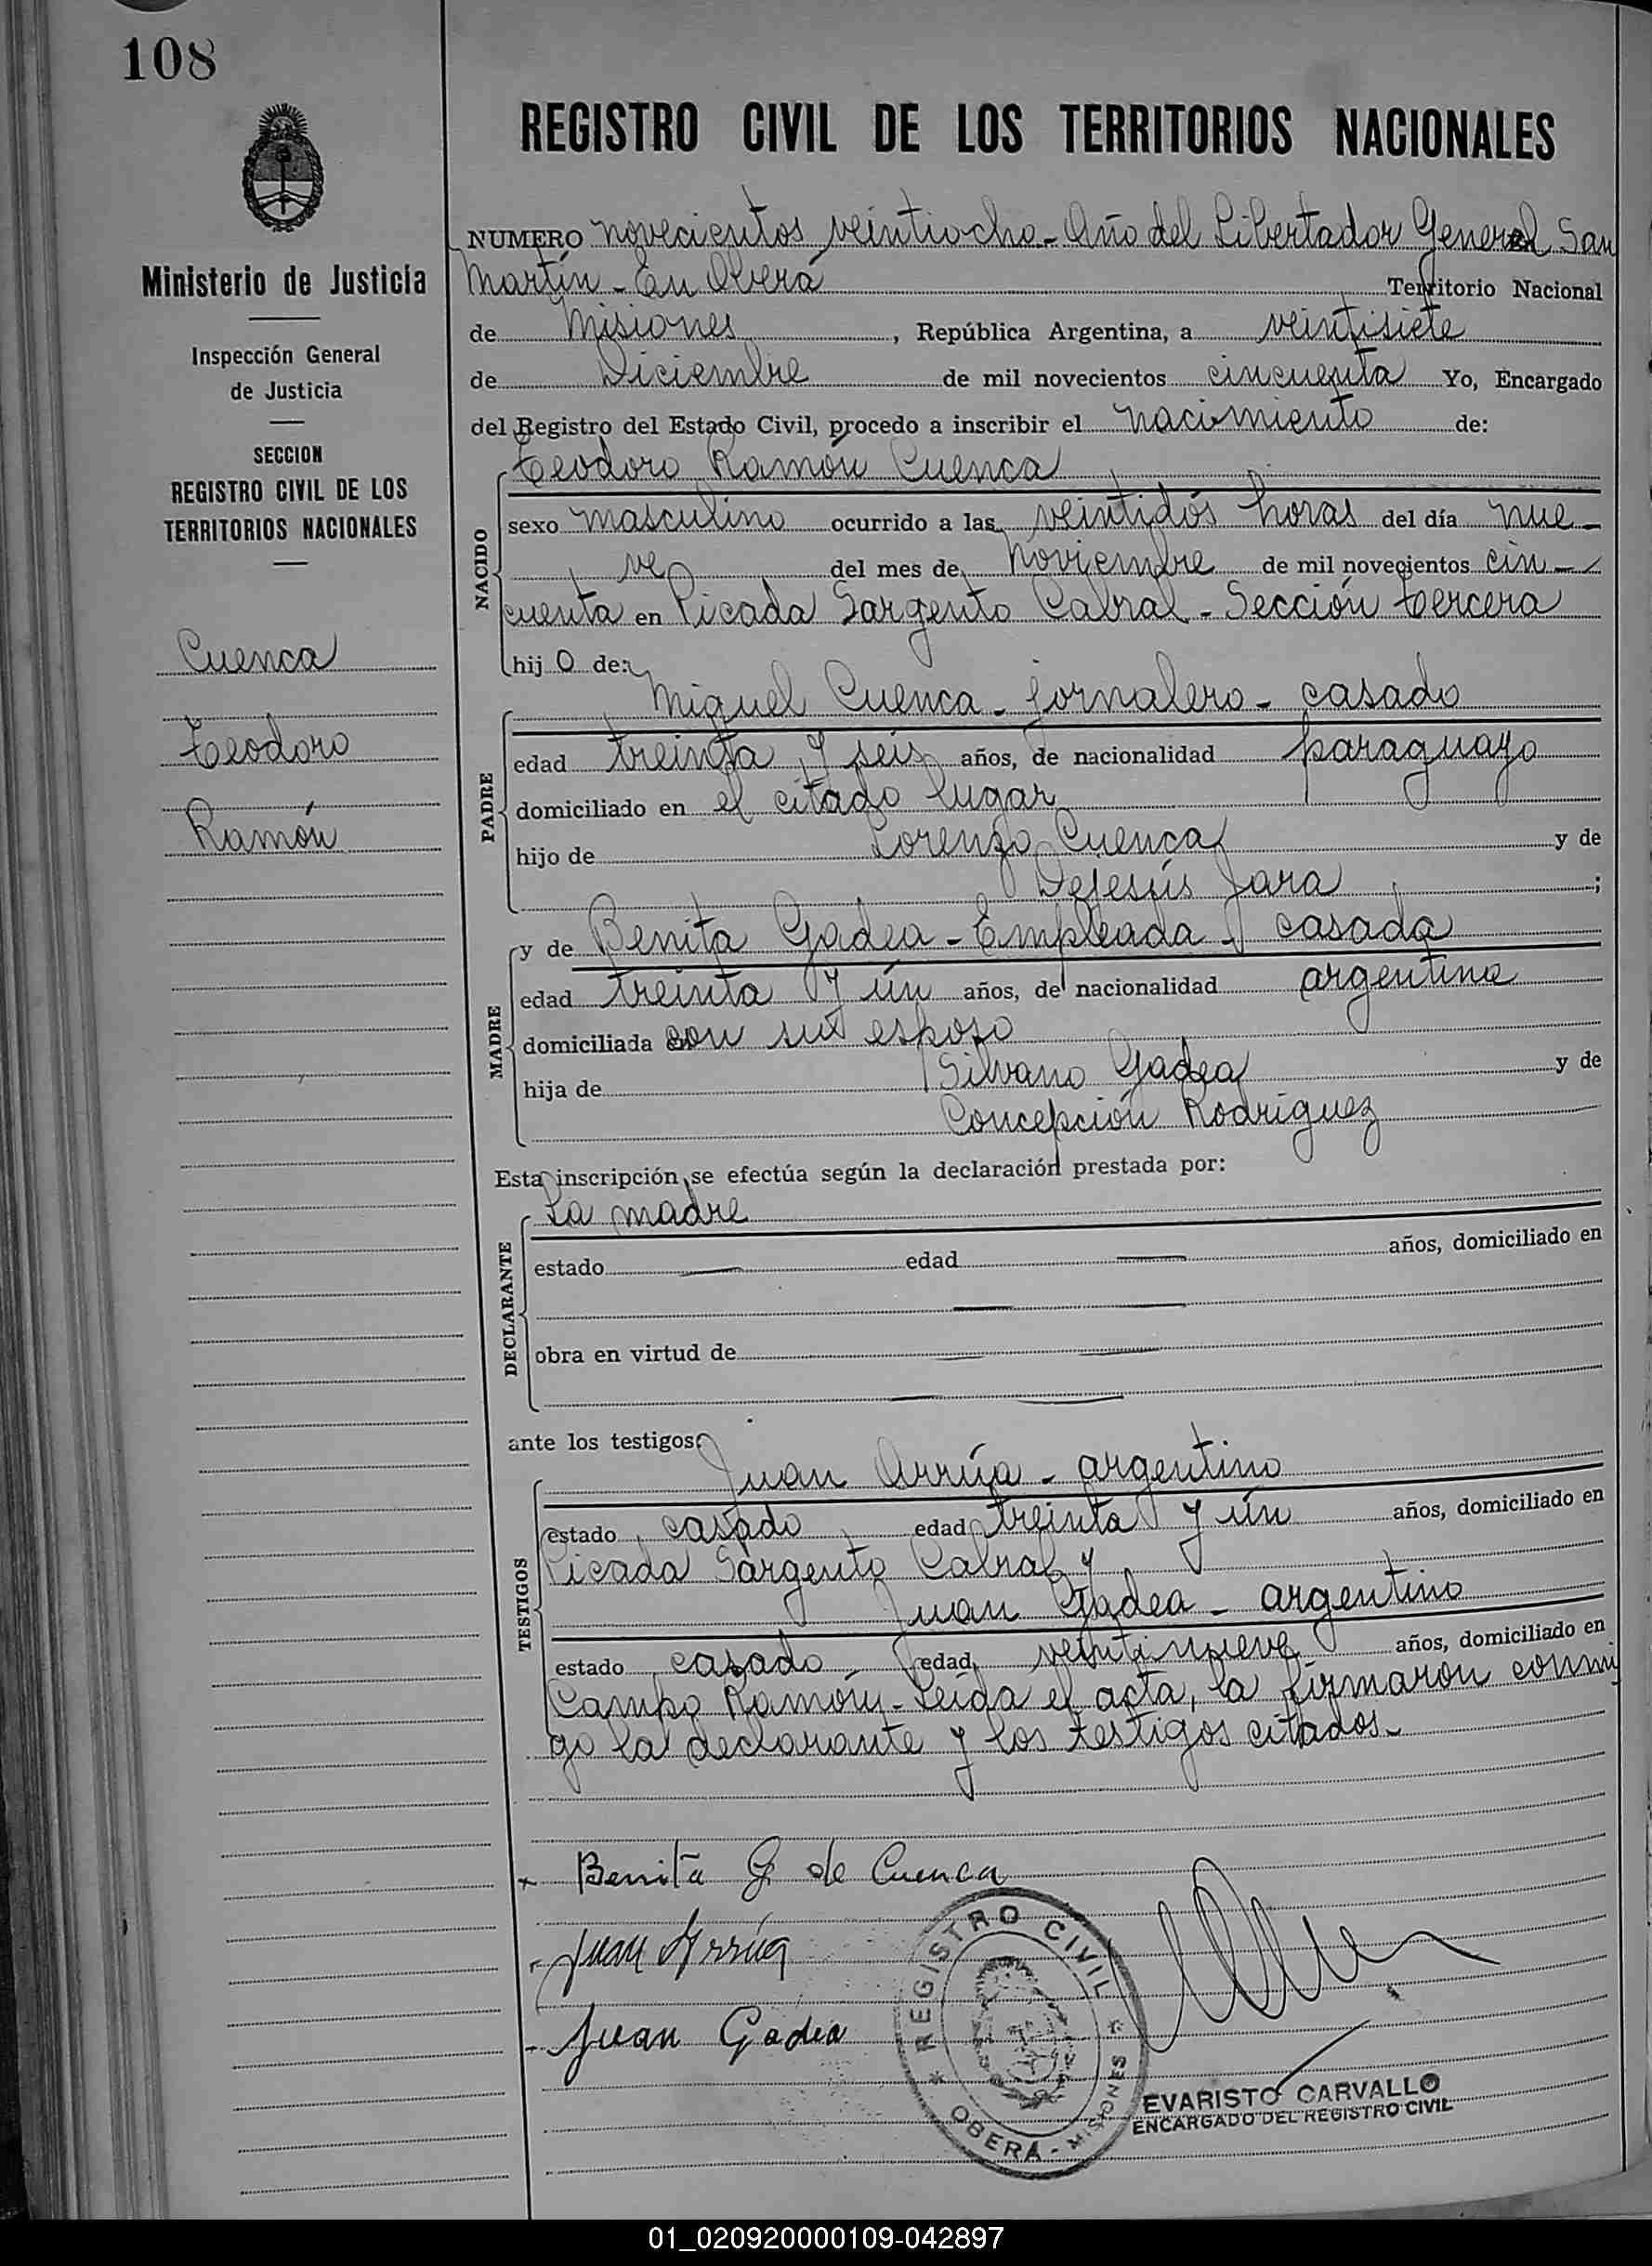 108
REGISTRO CIVIL DE LOS TERRITORIOS NACIONALES
Ministerio de Justicia
Inspección General
de Justicia
SECCION
REGISTRO CIVIL DE LOS
TERRITORIOS NACIONALES
Cuenca
Teodoro
Ramón
NUMERO novecientos veintiocho - Año del Libertador General San
Martín - En Oberá Territorio Nacional
de Misiones, República Argentina, a veintisiete
de Diciembre de mil novecientos cincuenta Yo, Encargado
del Registro del Estado Civil, procedo a inscribir el nacimiento de:
Teodoro Ramón Cuenca
NACIDO
sexo masculino ocurrido a las veintidós horas del día nue-
ve del mes de Noviembre de mil novecientos cin-
cuenta en Picada Sargento Cabral - Sección tercera
hijo de:
PADRE
Miguel Cuenca - jornalero - casado
edad treinta y seis años, de nacionalidad paraguayo
domiciliado en el citado lugar
hijo de Lorenzo Cuenca y de
DeJesús Jara ;
MADRE
y de Benita Gadea - Empleada - casada
edad treinta y ún años, de nacionalidad argentina
domiciliada con su esposo
hija de Silvano Gadea y de
Concepción Rodríguez
Esta inscripción se efectúa según la declaración prestada por:
DECLARANTE
La madre
estado — edad — años, domiciliado en
obra en virtud de
ante los testigos:
TESTIGOS
Juan Arrúa - argentino
estado casado edad treinta y ún años, domiciliado en
Picada Sargento Cabral y
Juan Gadea - argentino
estado casado - edad veintinueve años, domiciliado en
Campo Ramón - Leída el acta, la firmaron conmi
go la declarante y los testigos citados -
Benita G. de Cuenca
Juan Arrúa
Juan Gadea
REGISTRO CIVIL
* OBERA - MISIONES *
EVARISTO CARVALLO
ENCARGADO DEL REGISTRO CIVIL
01_020920000109-042897